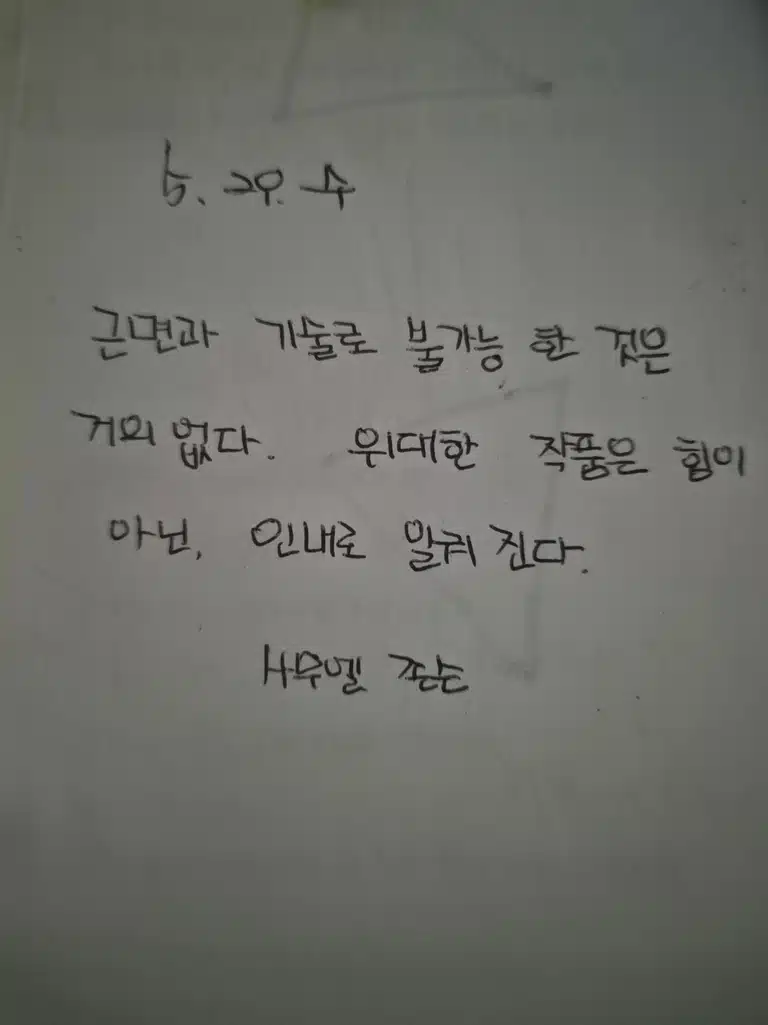 5. 20. 수
근면과 기술로 불가능 한 것은
거의 없다. 위대한 작품은 힘이
아닌, 인내로 일궈 진다.
사무엘 존슨